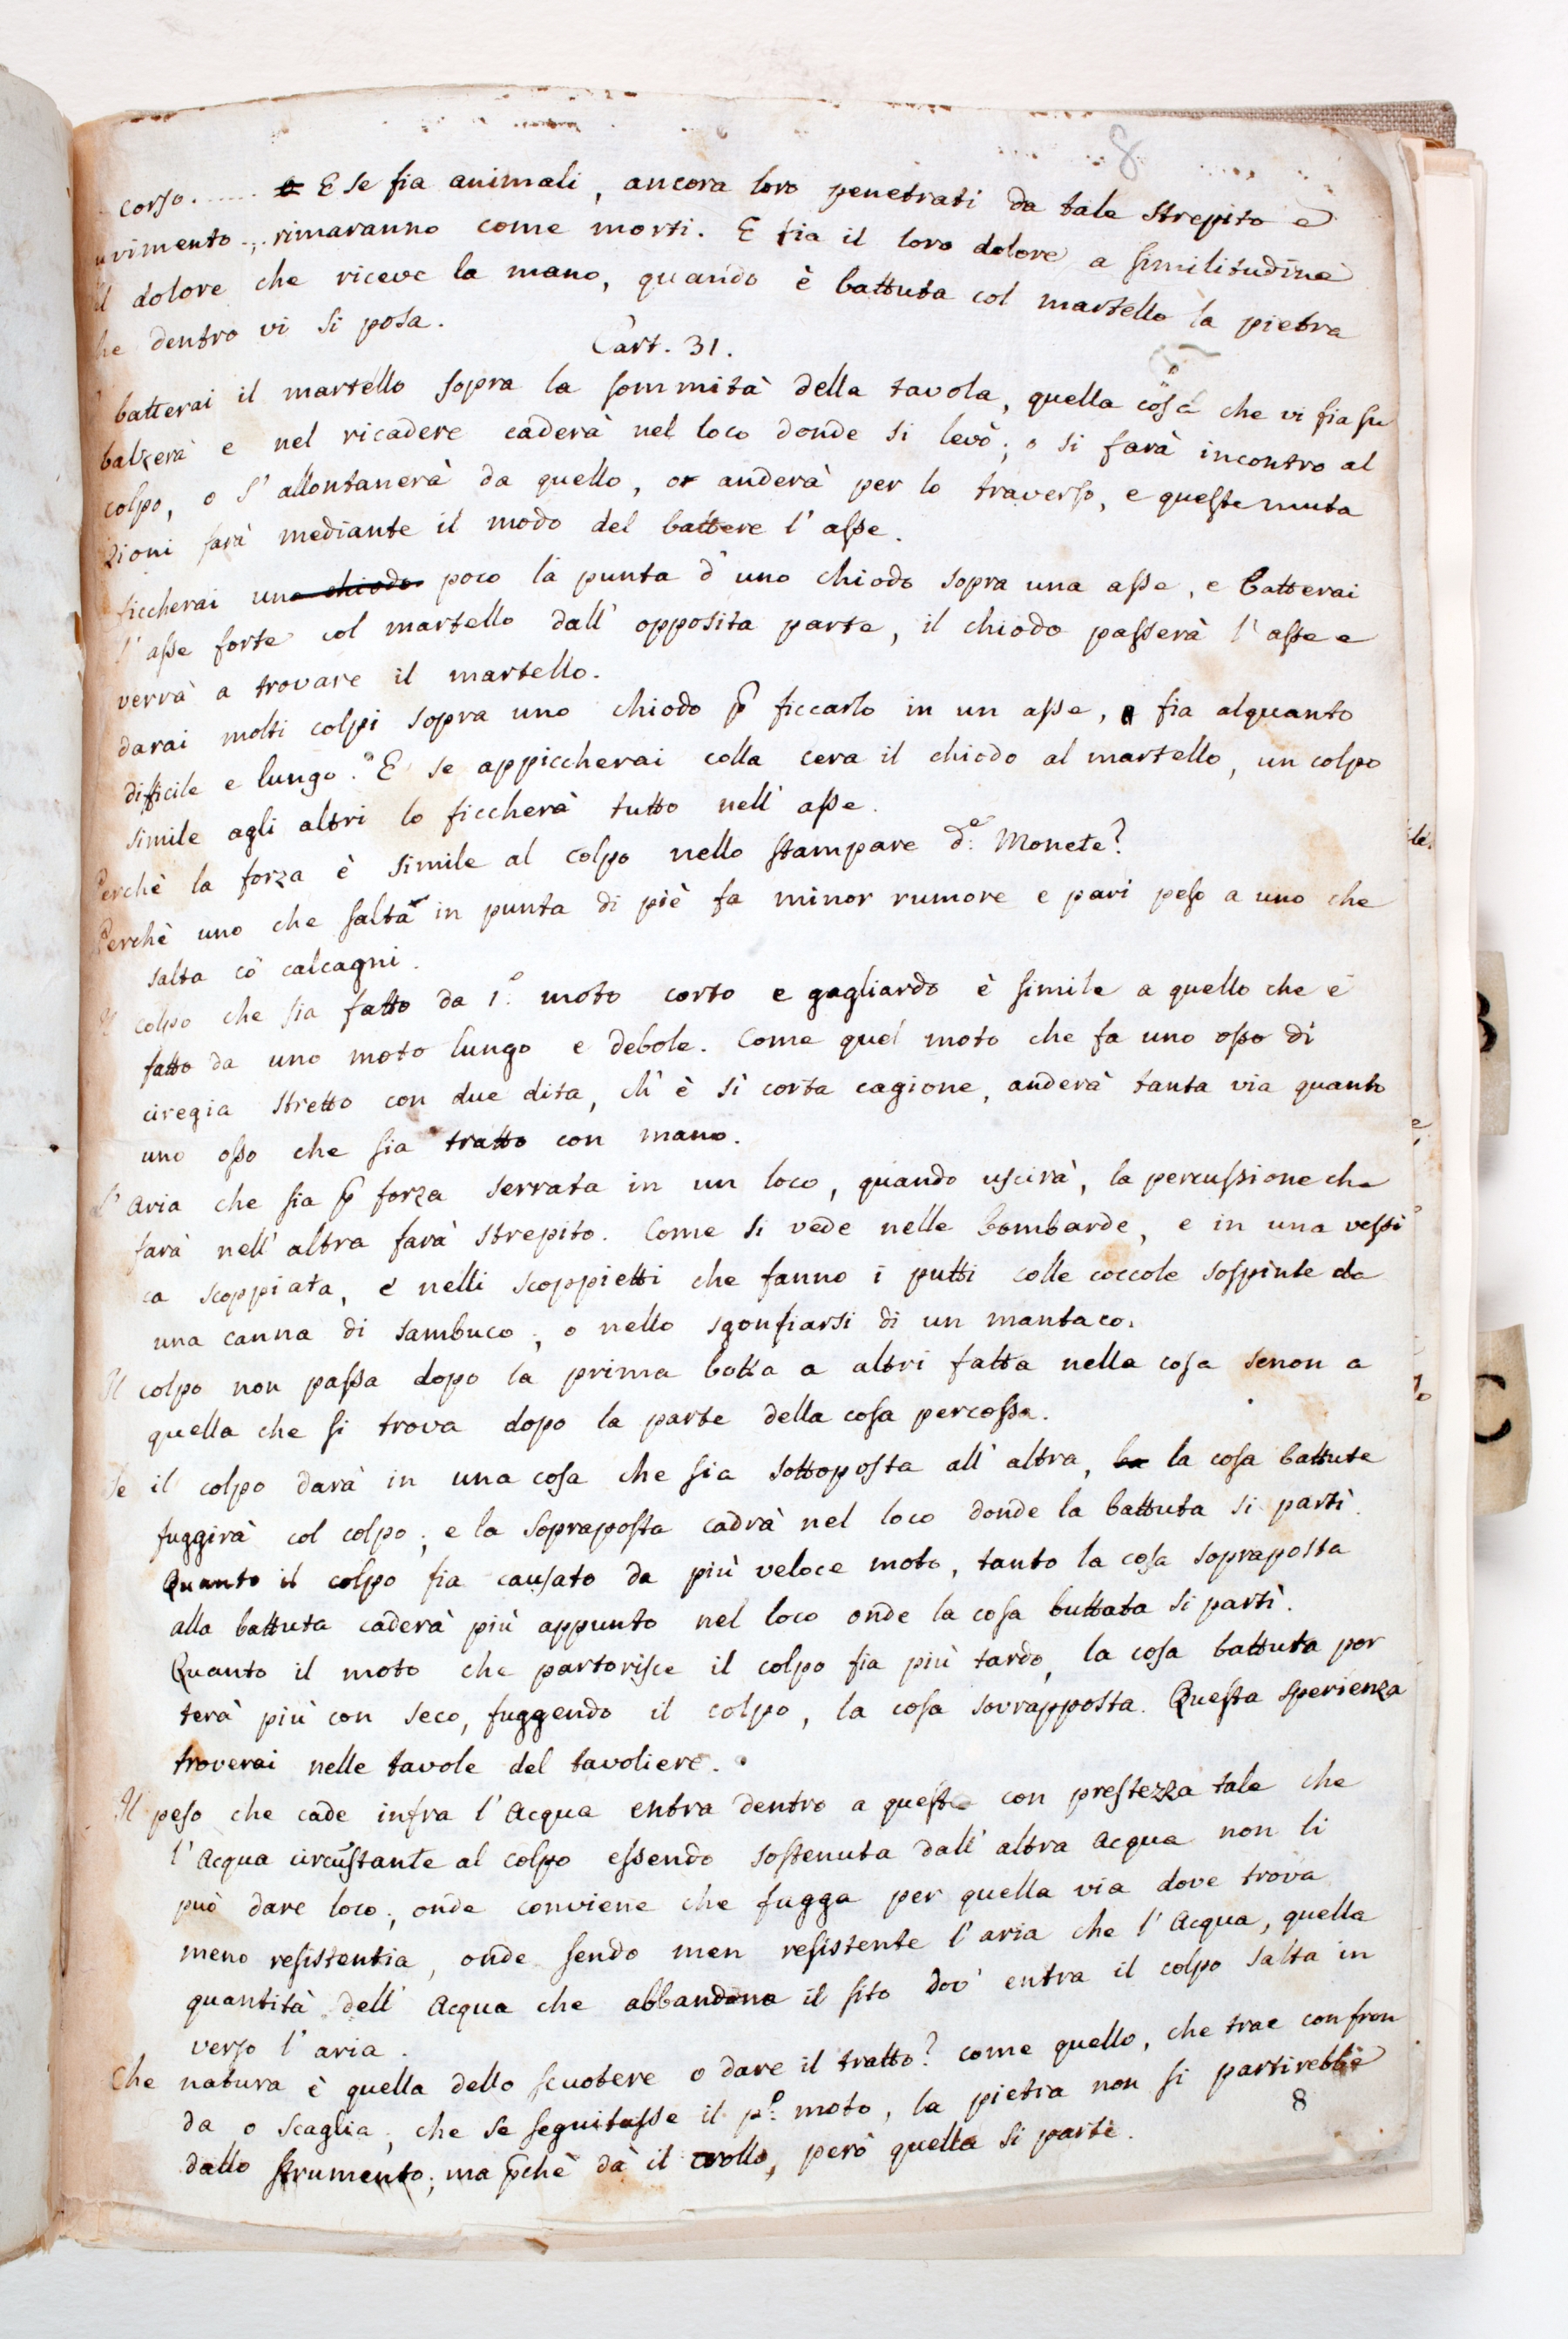 8
corso....... E se fia animali, ancora loro penetrati da tale strepito e
rimento.;. rimaranno come morti. E fia il loro dolore a similitudine
dolore che riceve la mano, quando è battuta col martello la pietra
he dentro vi si posa.
Cart. 31.
batterai il martello sopra la sommità della tavola, quella cosa che vi fia su
balzerà e nel ricadere caderà nel loco donde si levò; o si farà incontro al
colpo, o s'allontanerà da quello, o anderà per lo traverso, e queste muta
zioni farà mediante il modo del battere l'asse.
ficcherai uno chiodo poco la punta d'uno chiodo sopra una asse, e batterai
l'asse forte col martello dall'opposita parte, il chiodo passerà l'asse e
verrà a trovare il martello.
darai molti colpi sopra uno chiodo p ficcarlo in un asse, fia alquanto
difficile e lungo. E se appiccherai colla cera il chiodo al martello, un colpo
simile agli altri lo ficcherà tutto nell'asse.
Perchè la forza è simile al colpo nello stampare d:e Monete?
Perchè uno che salta in punta di piè fa minor rumore e pari peso a uno che
salta co' calcagni.
Il colpo che sia fatto da 1:o moto corto e gagliardo è simile a quello che è
fatto da uno moto lungo e debole. Come quel moto che fa uno osso di
ciregia stretto con due dita, ch'è sì corta cagione, anderà tanta via quanto
uno osso che sia tratto con mano.
L'Aria che sia p forza serrata in un loco, quando uscirà, la percussione che
farà nell'altra farà strepito. Come si vede nelle bombarde, e in una vessi
ca scoppiata, e nelli scoppietti che fanno i putti colle coccole sospinte da
una canna di sambuco; o nello sgonfiarsi di un mantaco.
Il colpo non passa dopo la prima botta a altri fatta nella cosa senon a
quella che si trova dopo la parte della cosa percossa.
Se il colpo darà in una cosa che sia sottoposta all'altra, la la cosa battuta
fuggirà col colpo; e la sopraposta cadrà nel loco donde la battuta si partì.
Quanto il colpo fia causato da più veloce moto, tanto la cosa sopraposta
alla battuta caderà più appunto nel loco onde la cosa buttata si partì.
Quanto il moto che partorisce il colpo fia più tardo, la cosa battuta por
terà più con seco, fuggendo il colpo, la cosa sovrapposta. Questa sperienza
troverai nelle tavole del tavoliere.
Il peso che cade infra l'Acqua entra dentro a questa con prestezza tale che
l'Acqua circustante al colpo essendo sostenuta dall'altra Acqua non li
può dare loco; onde conviene che fugga per quella via dove trova
meno resistentia, onde sendo men resistente l'aria che l'Acqua, quella
quantità dell'Acqua che abbandona il sito dov'entra il colpo salta in
verso l'aria.
Che natura è quella dello scuotere o dare il tratto? come quello, che trae con fron
da o scaglia; che se seguitasse il p:o moto, la pietra non si partirebbe
dallo strumento; ma pchè dà il crollo, però quella si parte.
8